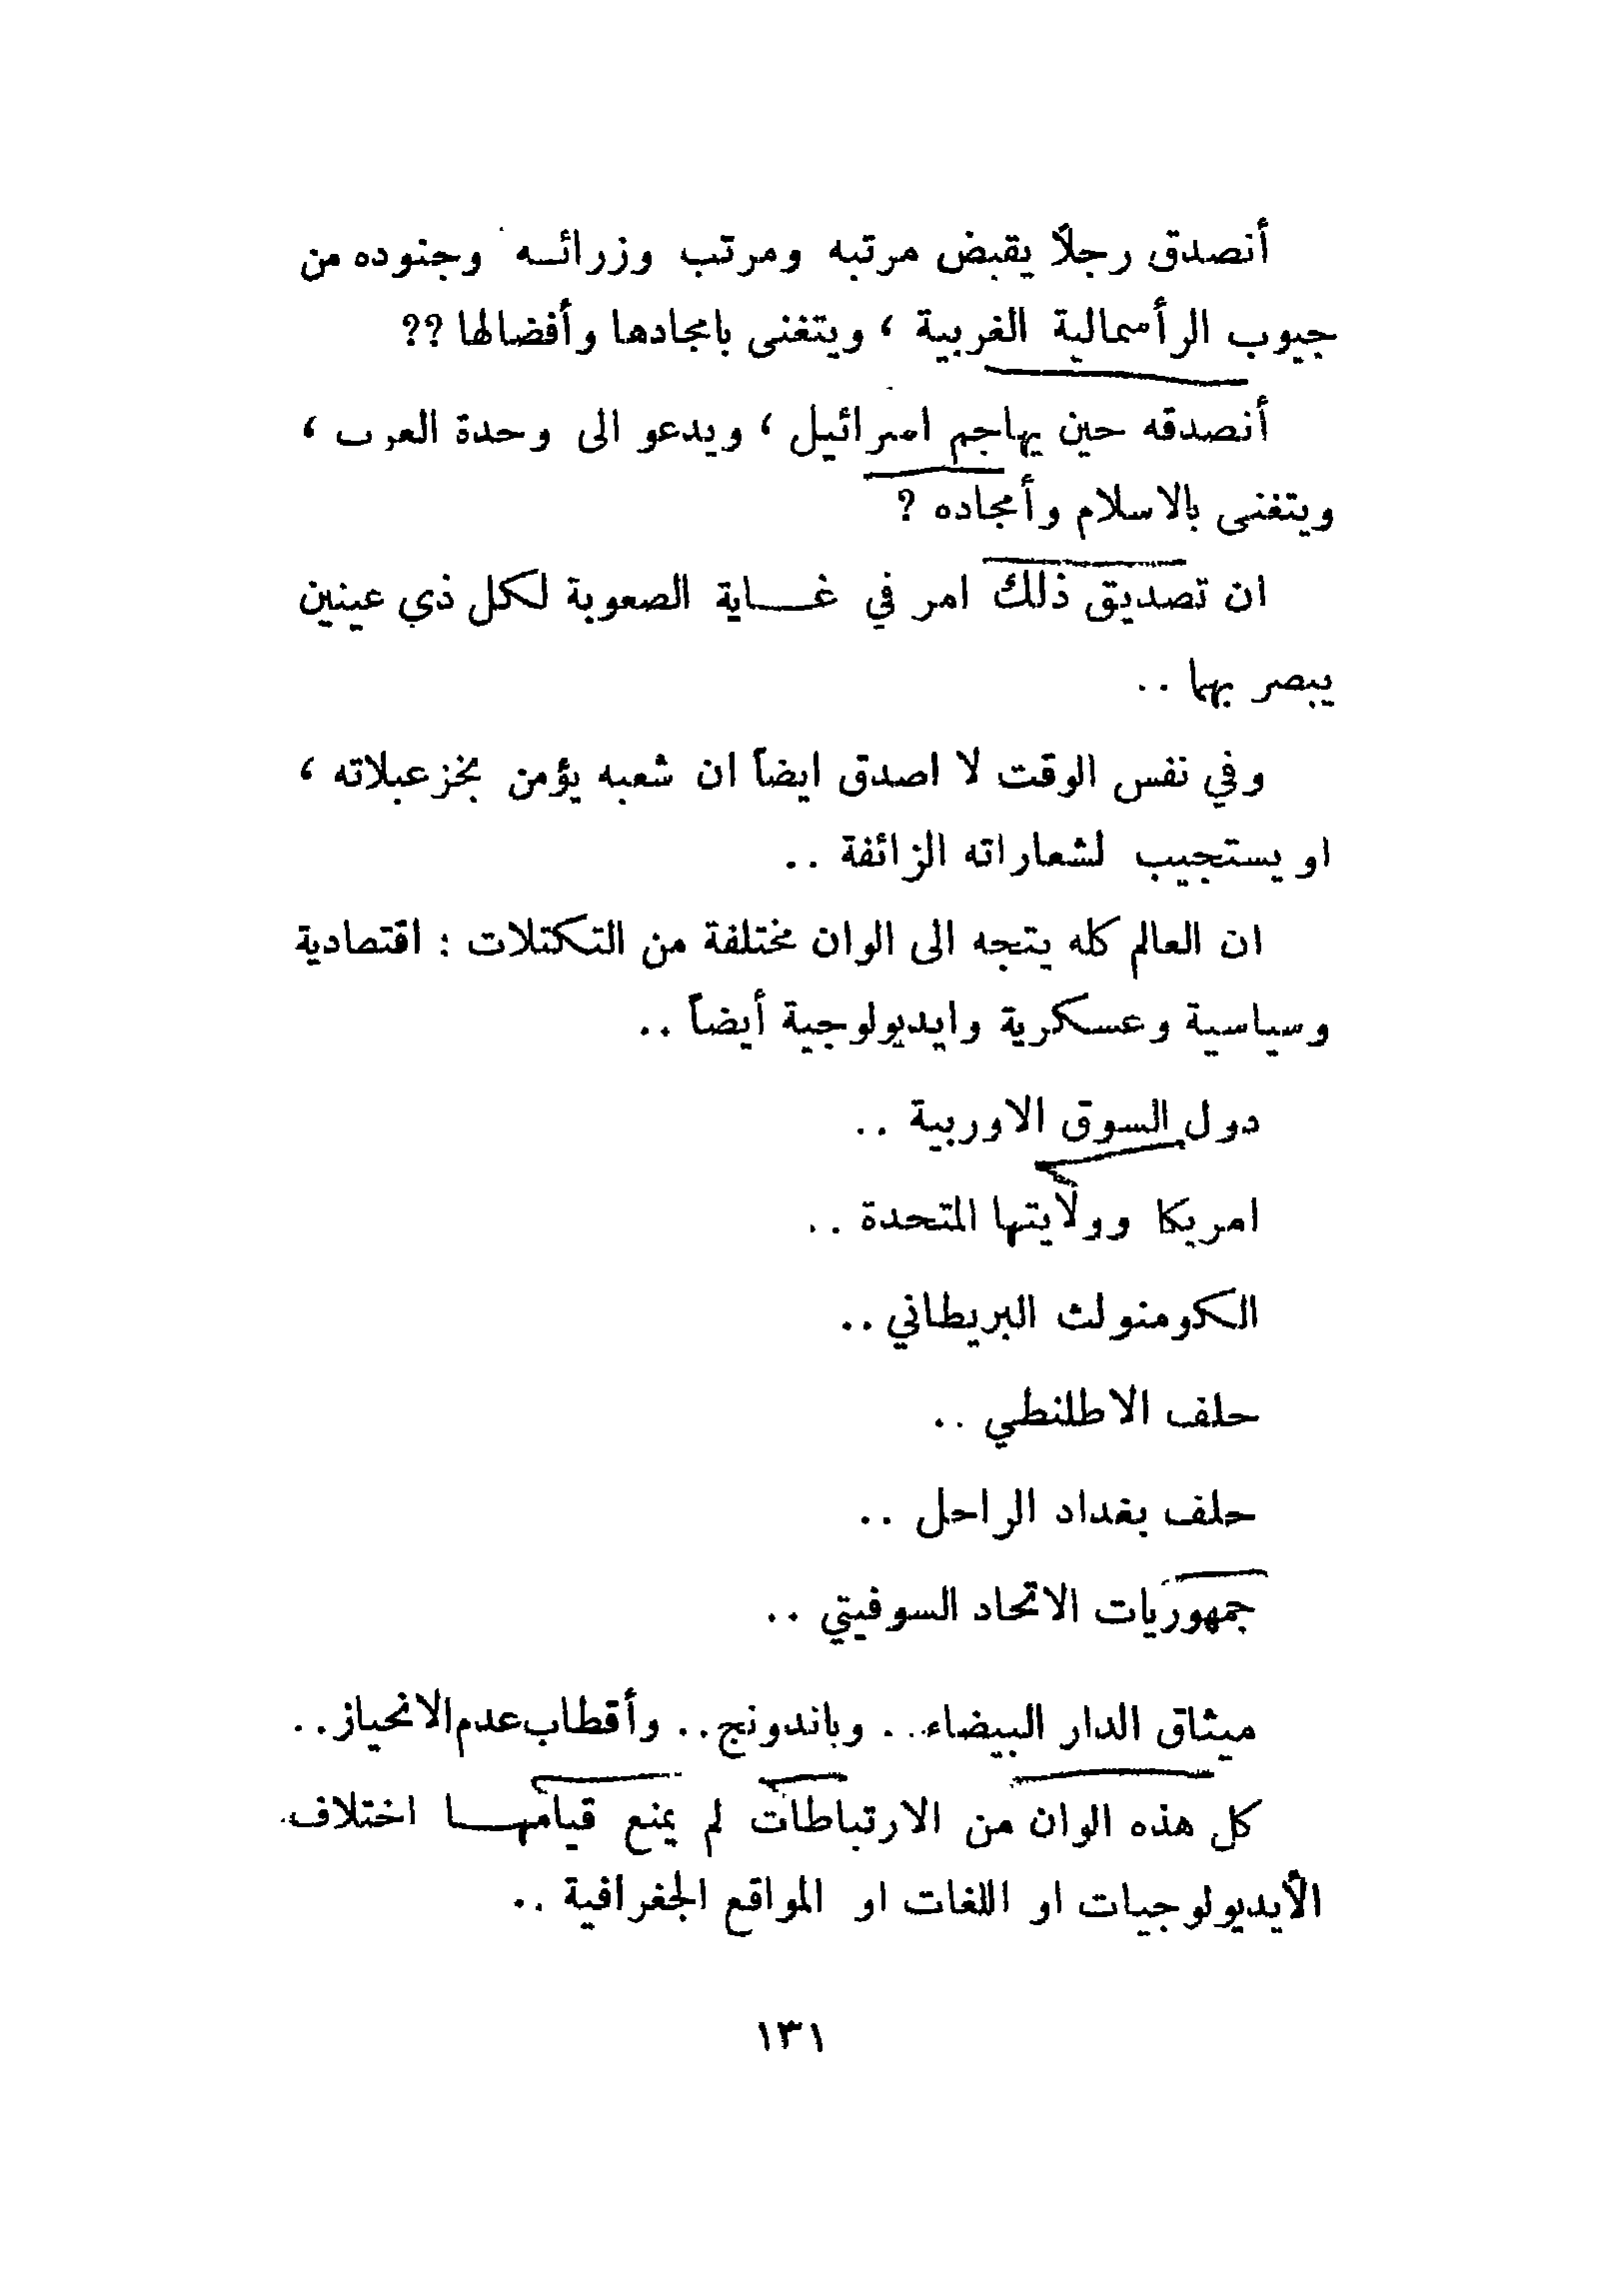 أنصدق رجلاً يقبض مرتبه ومرتب وزرائـه وجنوده من
جيوب الرأسمالية الغربية ، ويتغنى بامجادها وأفضالها ؟؟
أنصدقه حين يهاجم اسرائيل ، ويدعو الى وحدة العرب ،
ويتغنى بالاسلام وأمجاده ؟
ان تصديق ذلك امر في غـــاية الصعوبة لكل ذي عينين
يبصر بهما ..
وفي نفس الوقت لا اصدق ايضاً ان شعبه يؤمن بخزعبلاته ،
او يستجيب لشعاراته الزائفة ..
ان العالم كله يتجه الى الوان مختلفة من التكتلات : اقتصادية
وسياسية وعسكرية وايديولوجية أيضاً ..
دول السوق الاوربية ..
امريكا وولايتها المتحدة ..
الكومنولث البريطاني ..
حلف الاطلنطي ..
حلف بغداد الراحل ..
جمهوريات الاتحاد السوفيتي ..
ميثاق الدار البيضاء .. وباندونج .. وأقطاب عدم الانحياز ..
كل هذه الوان من الارتباطات لم يمنع قيامهـــا اختلاف
الأيديولوجيات او اللغات او المواقع الجغرافية ..
١٣١